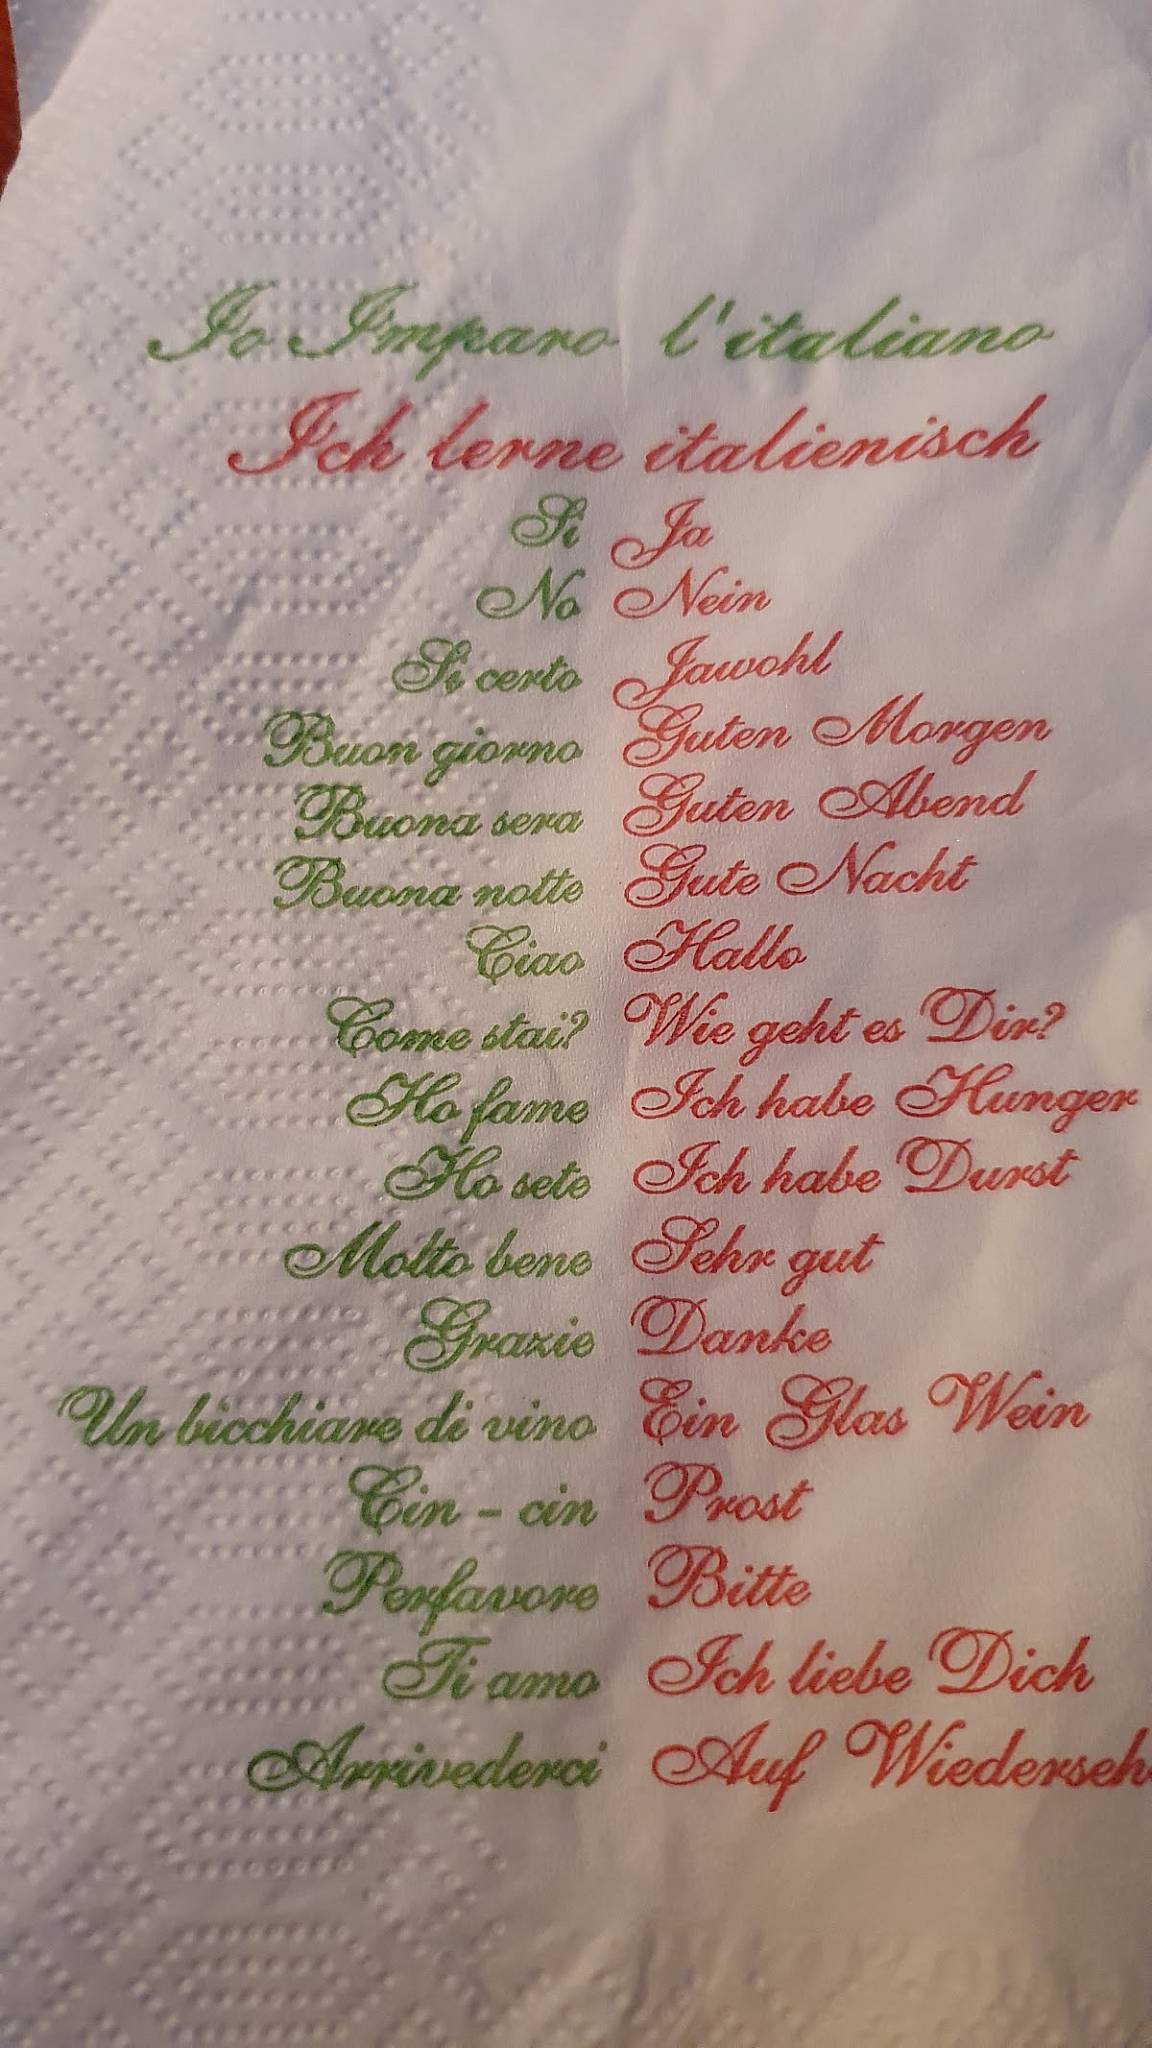 Io Imparo l'italiano
Ich lerne italienisch
Si Ja
No Nein
Si certo Jawohl
Buon giorno Guten Morgen
Buona sera Guten Abend
Buona notte Gute Nacht
Ciao Hallo
Come stai? Wie geht es Dir?
Ho fame Ich habe Hunger
Ho sete Ich habe Durst
Molto bene Sehr gut
Grazie Danke
Un bicchiare di vino Ein Glas Wein
Cin - cin Prost
Perfavore Bitte
Ti amo Ich liebe Dich
Arrivederci Auf Wiederseh